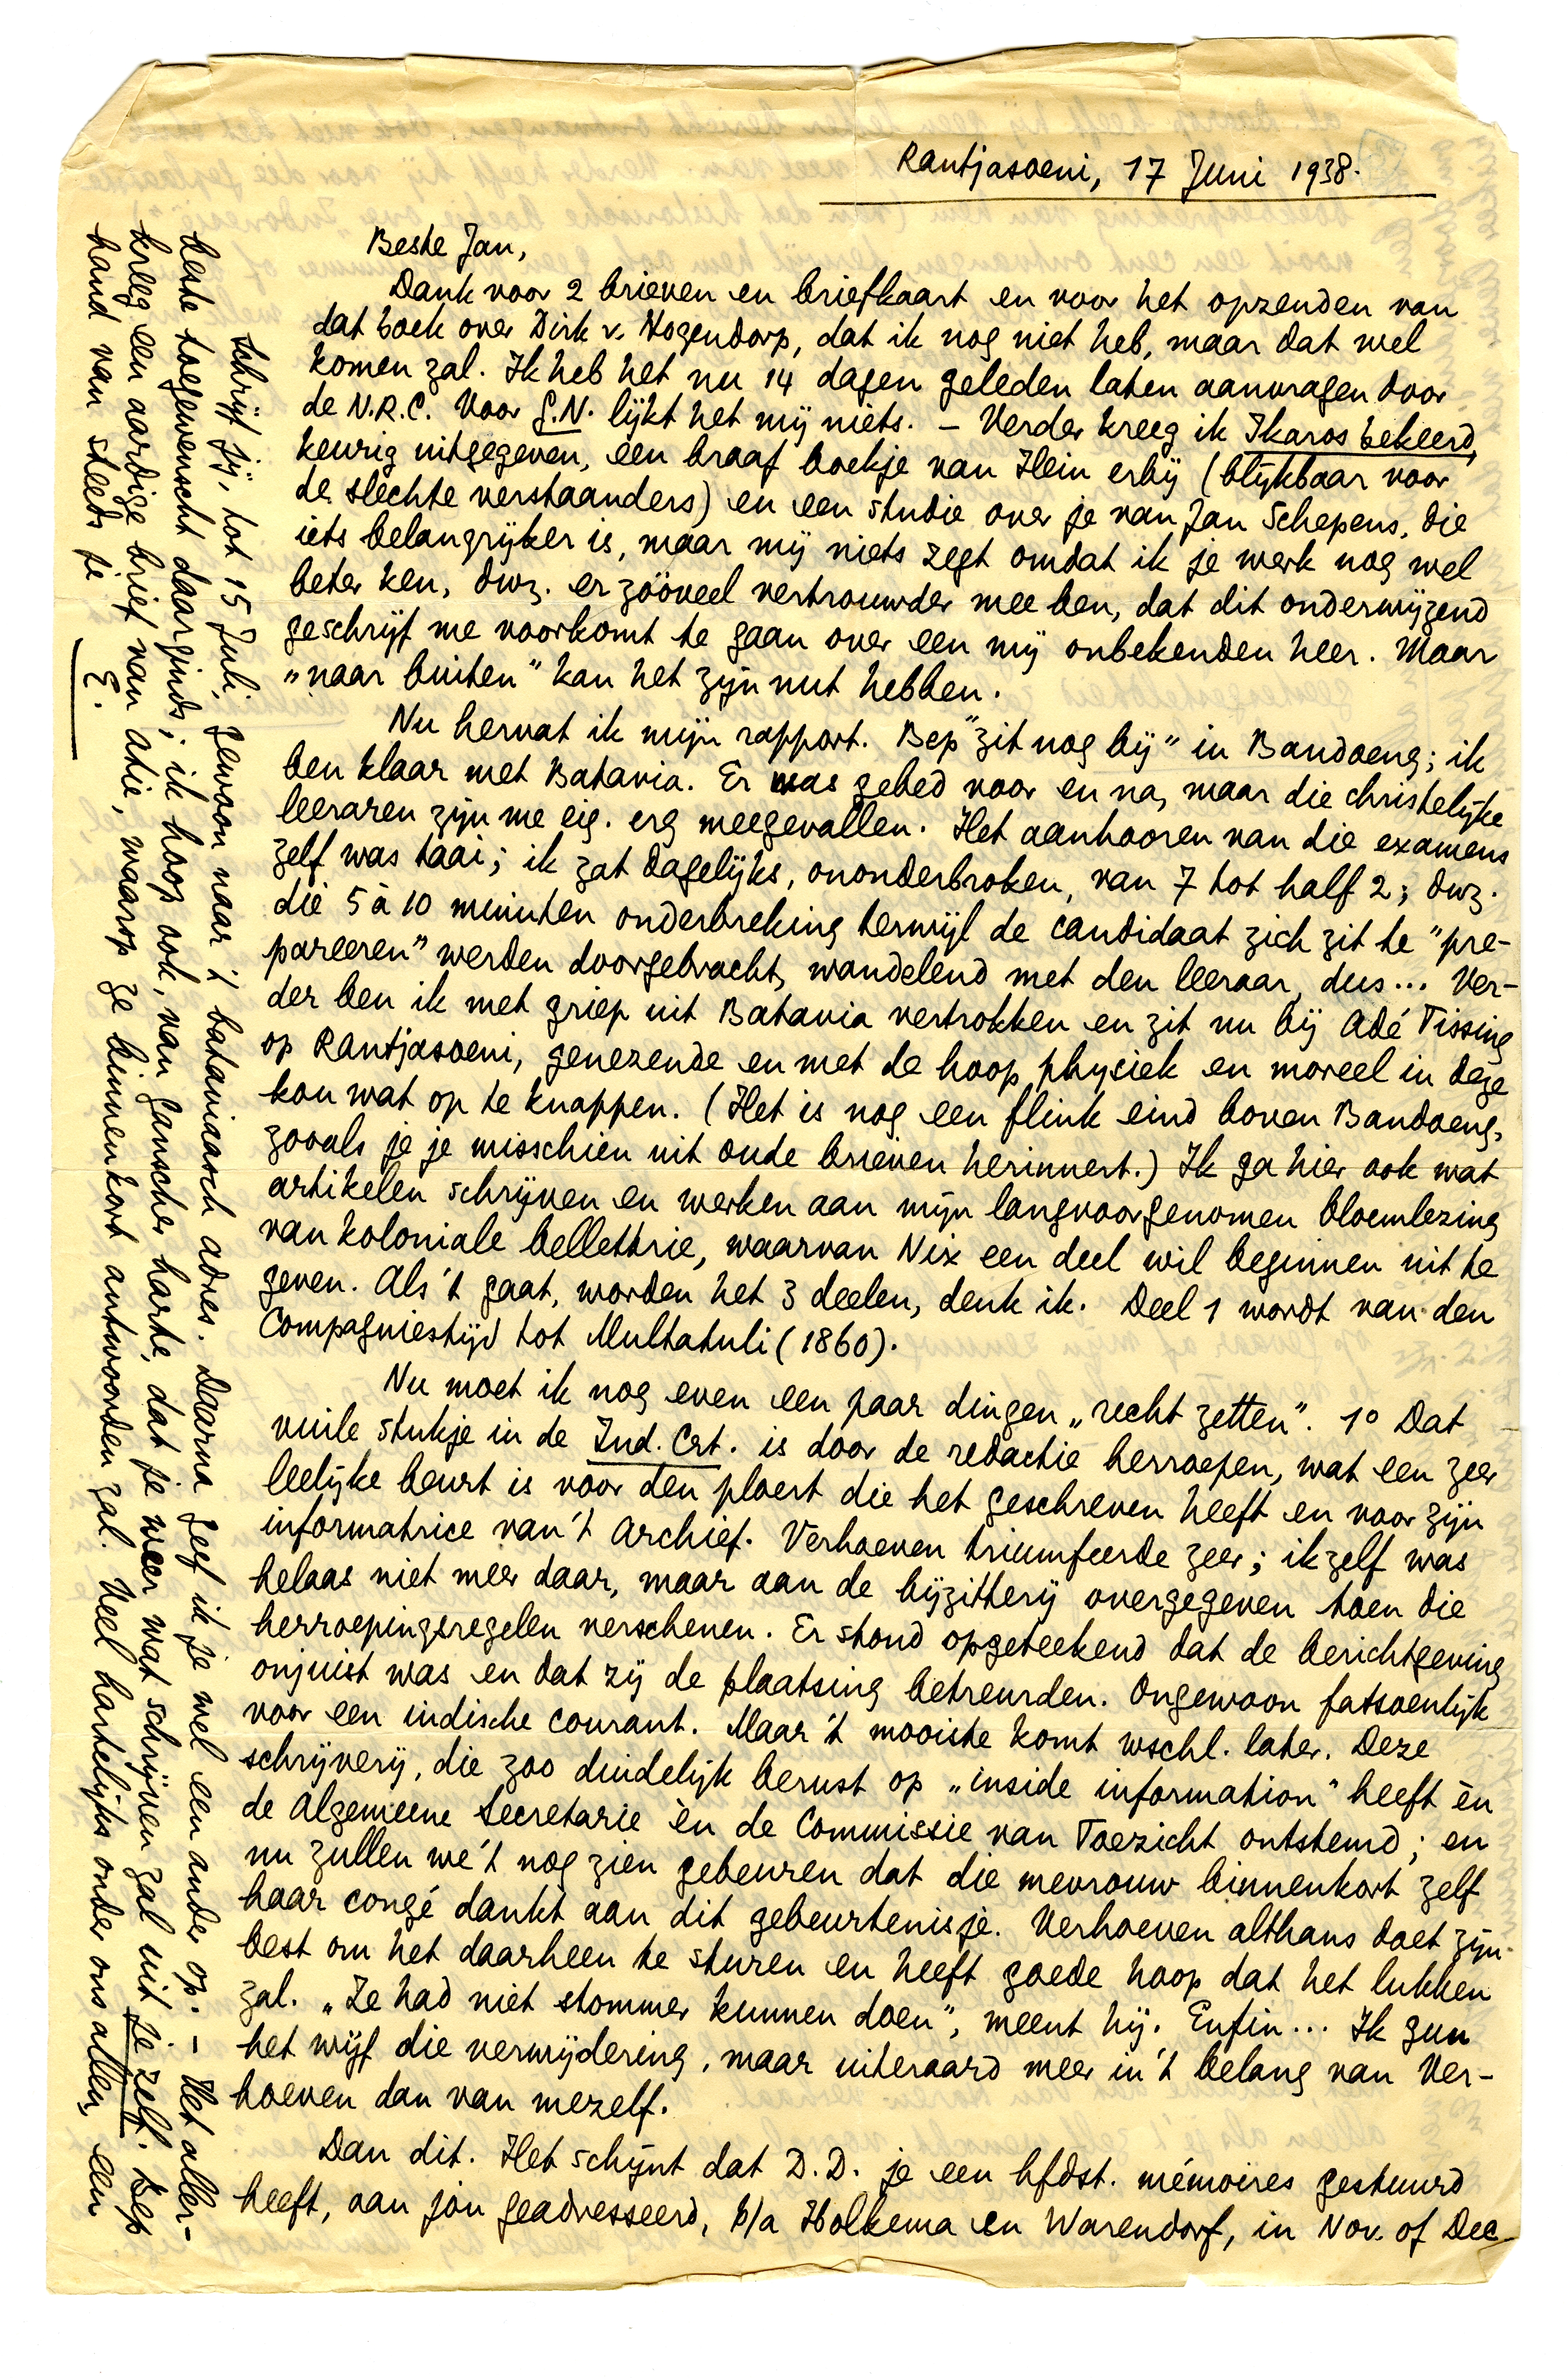 Rantjasoeni, 17 Juni 1938.
Beste Jan,
Dank voor 2 brieven en briefkaart en voor het opzenden van
dat boek over Dirk v. Hogendorp, dat ik nog niet heb, maar dat wel
komen zal. Ik heb het nu 14 dagen geleden laten aanvragen door
de N.R.C. Voor G.N. lijkt het mij niets. – Verder kreeg ik Ikaros bekeerd,
keurig uitgegeven, een braaf boekje van Hein erbij (blijkbaar voor
de slechte verstaanders) en een studie over je van Jan Schepens, die
iets belangrijker is, maar mij niets zegt omdat ik je werk nog wel
beter ken, dwz. er zóóveel vertrouwder mee ben, dat dit onderwijzend
geschrijf me voorkomt te gaan over een mij onbekenden heer. Maar
„naar buiten" kan het zijn nut hebben.
Nu hervat ik mijn rapport. Bep "zit nog bij" in Bandoeng; ik
ben klaar met Batavia. Er was gebed voor en na, maar die christelijke
leeraren zijn me eig. erg meegevallen. Het aanhooren van die examens
zelf was taai; ik zat dagelijks, ononderbroken, van 7 tot half 2; dwz.
die 5 à 10 minuten onderbreking terwijl de candidaat zich zit te "pre-
pareeren" werden doorgebracht, wandelend met den leeraar, dus... Ver-
der ben ik met griep uit Batavia vertrokken en zit nu bij Adé Tissing
op Rantjasoeni, genezende en met de hoop physiek en moreel in deze
kou wat op te knappen. (Het is nog een flink eind boven Bandoeng,
zooals je je misschien uit oude brieven herinnert.) Ik ga hier ook wat
artikelen schrijven en werken aan mijn langvoorgenomen bloemlezing
van koloniale bellettrie, waarvan Nix een deel wil beginnen uit te
geven. Als 't gaat, worden het 3 deelen, denk ik. Deel 1 wordt van den
Compagniestijd tot Multatuli (1860).
Nu moet ik nog even een paar dingen „recht zetten". 1º Dat
vuile stukje in de Ind. Crt. is door de redactie herroepen, wat een zeer
leelijke beurt is voor den ploert die het geschreven heeft en voor zijn
informatrice van 't Archief. Verhoeven triumfeerde zeer; ik zelf was
helaas niet meer daar, maar aan de bijzitterij overgegeven toen die
herroepingsregelen verschenen. Er stond opgeteekend dat de berichtgeving
onjuist was en dat zij de plaatsing betreurden. Ongewoon fatsoenlijk
voor een indische courant. Maar 't mooiste komt wschl. later. Deze
schrijverij, die zoo duidelijk berust op „inside information" heeft èn
de Algemeene Secretarie èn de Commissie van Toezicht ontstemd; en
nu zullen we 't nog zien gebeuren dat die mevrouw binnenkort zelf
haar congé dankt aan dit gebeurtenisje. Verhoeven althans doet zijn
best om het daarheen te sturen en heeft goede hoop dat het lukken
zal. „Ze had niet stommer kunnen doen", meent hij. Enfin... Ik gun
het wijf die verwijdering, maar uiteraard meer in 't belang van Ver-
hoeven dan van mezelf.
Dan dit. Het schijnt dat D.D. je een hfdst. mémoires gestuurd
heeft, aan jou geadresseerd, p/a Holkema en Warendorf, in Nov. of Dec
Schrijf jij, tot 15 Juli, gewoon naar 't bataviaasch adres. Daarna geef ik je wel een ander op. – Het aller-
beste toegewenscht daarginds; ik hoop ook, van ganscher harte, dat je weer wat schrijven zal uit je zelf. Bep
kreeg een aardige brief van Atie, waarop ze binnenkort antwoorden zal. Veel hartelijks onder ons allen, een
hand van steeds je
E.